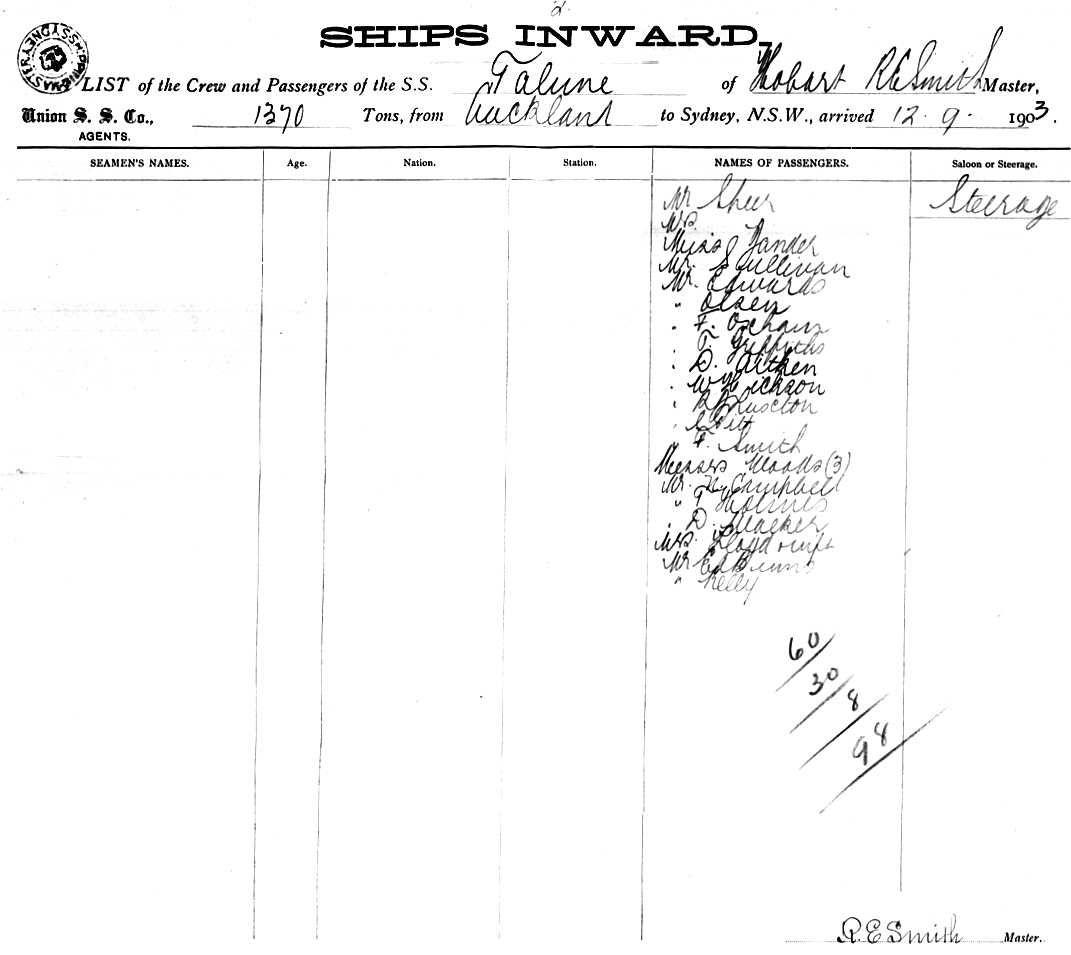 2.
SHIPS INWARD.
LIST of the Crew and Passengers of the S.S. Talune of Hobart R E Smith Master,
Union S. S. Co., 1370 Tons, from Auckland to Sydney, N.S.W., arrived 12. 9. 1903.
AGENTS.
SEAMEN'S NAMES. Age. Nation. Station. NAMES OF PASSENGERS. Saloon or Steerage.
Mr Steerage
Mrs.
Miss
Mr. Sullivan
Mr. Edwards
" Olsen
" F.
" T. Griffiths
" D. Aitken
" W
"
" Pitt
" F. Smith
Messrs Woods (3)
Mr. Campbell
" T Holmes
" D.
Mrs. Lloyd
Mr Binns
" Kelly
60/
30/
8/
98/
R. E Smith Master.